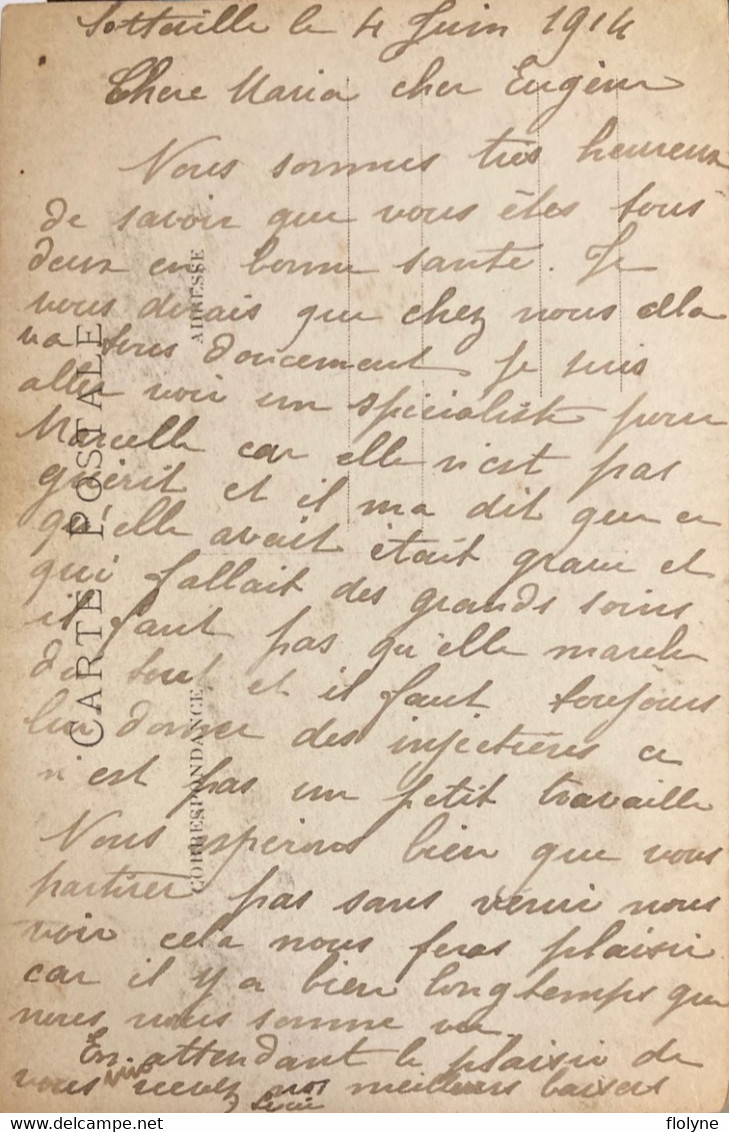 Sotteville le 4 Juin 1914
Chere Maria cher Eugène
Nous sommes très heureux
de savoir que vous êtes tous
deux en bonne santé. Je
vous dirais que chez nous ella
va tous doucement je suis
aller voir un spécialiste pour
Marcelle car elle n'est pas
guérit et il ma dit que ce
qu'elle avait était grave et
qui fallait des grands soins
il faut pas qu'elle marche
du tout et il faut toujours
lui donner des injectières ce
n'est pas un petit travaille
Nous espérons bien que vous
partirer pas sans venir nous
voir cela nous feras plaisir
car il y a bien longtemps que
nous nous somme vu.
En attendant le plaisir de
vous recevez nos meilleurs baisers
CARTE POSTALE
CORRESPONDANCE
ADRESSE
flolyne